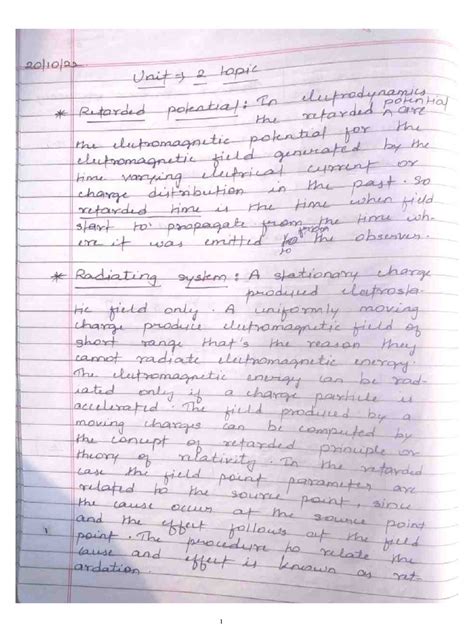 20/10/22
Unit ⇒ 2 topic
* Retarded potential : In elutrodynamics
the retarded potential are
the elutromagnetic potential for the
elutromagnetic field generated by the
time varying elutrical current or
charge distribution in the past. So
retarded time is the time when field
start to propagate from the time wh-
ere it was emitted to the observer.
* Radiating system : A stationary charge
produced elutrosta-
tic field only. A uniformly moving
charge produce elutromagnetic field of
short range that's the reason they
cannot radiate elutromagnetic energy.
The elutromagnetic energy can be rad-
iated only if a charge partule is
accelerated. The field produced by a
moving charges can be computed by
the conupt of retarded principle or
theory of relativity. In the retarded
case the field point parameter are
related to the source point, since
the cause occur at the source point
and the effect follows at the field
point. The procedure to relate the
cause and effect is known as ret-
ardation.
1